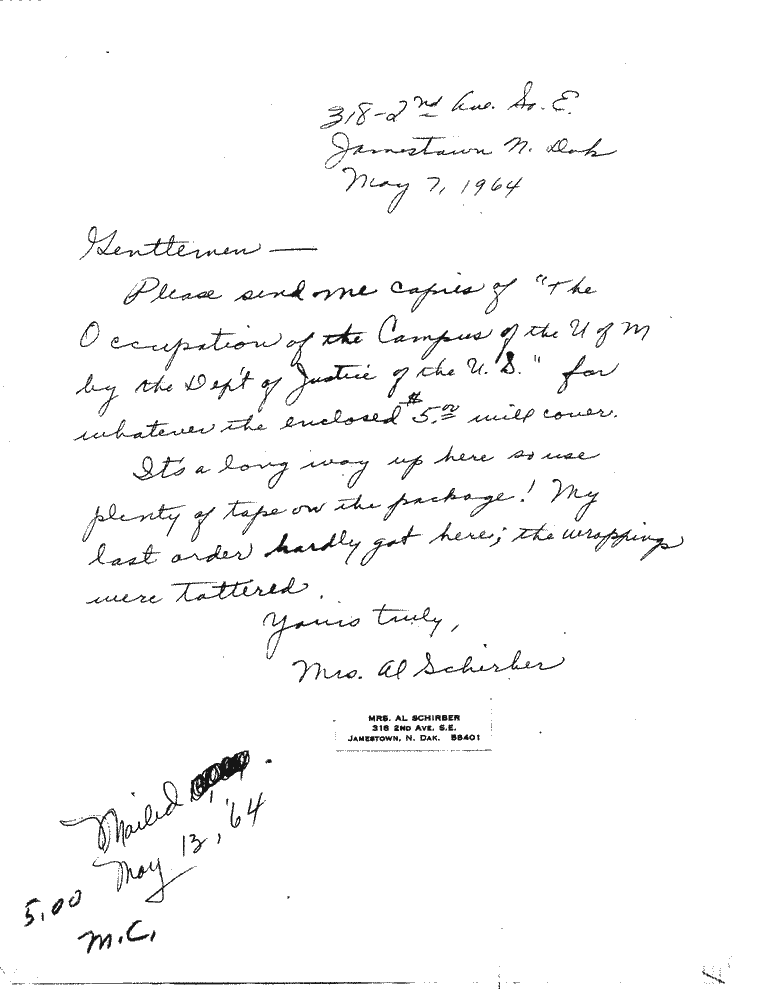 318-2nd Ave. So. E.
Jamestown N. Dak
May 7, 1964
Gentlemen —
Please send me copies of "The
Occupation of the Campus of the U of M
by the Dep't of Justice of the U.S." for
whatever the enclosed $5.00 will cover.
It's a long way up here so use
plenty of tape on the package! My
last order hardly got here; the wrappings
were tattered.
Yours truly,
Mrs. Al Schirber
MRS. AL SCHIRBER
318 2ND AVE. S.E.
JAMESTOWN, N. DAK. 58401
Mailed
May 13, '64
5.00
M.C.